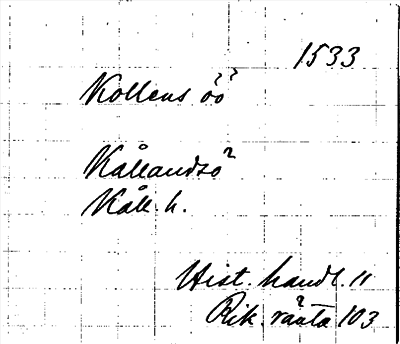 1533
Kollens öö
Kållandsö
Kåll. h.
Hist. handl. 11
Rik. ränta 103